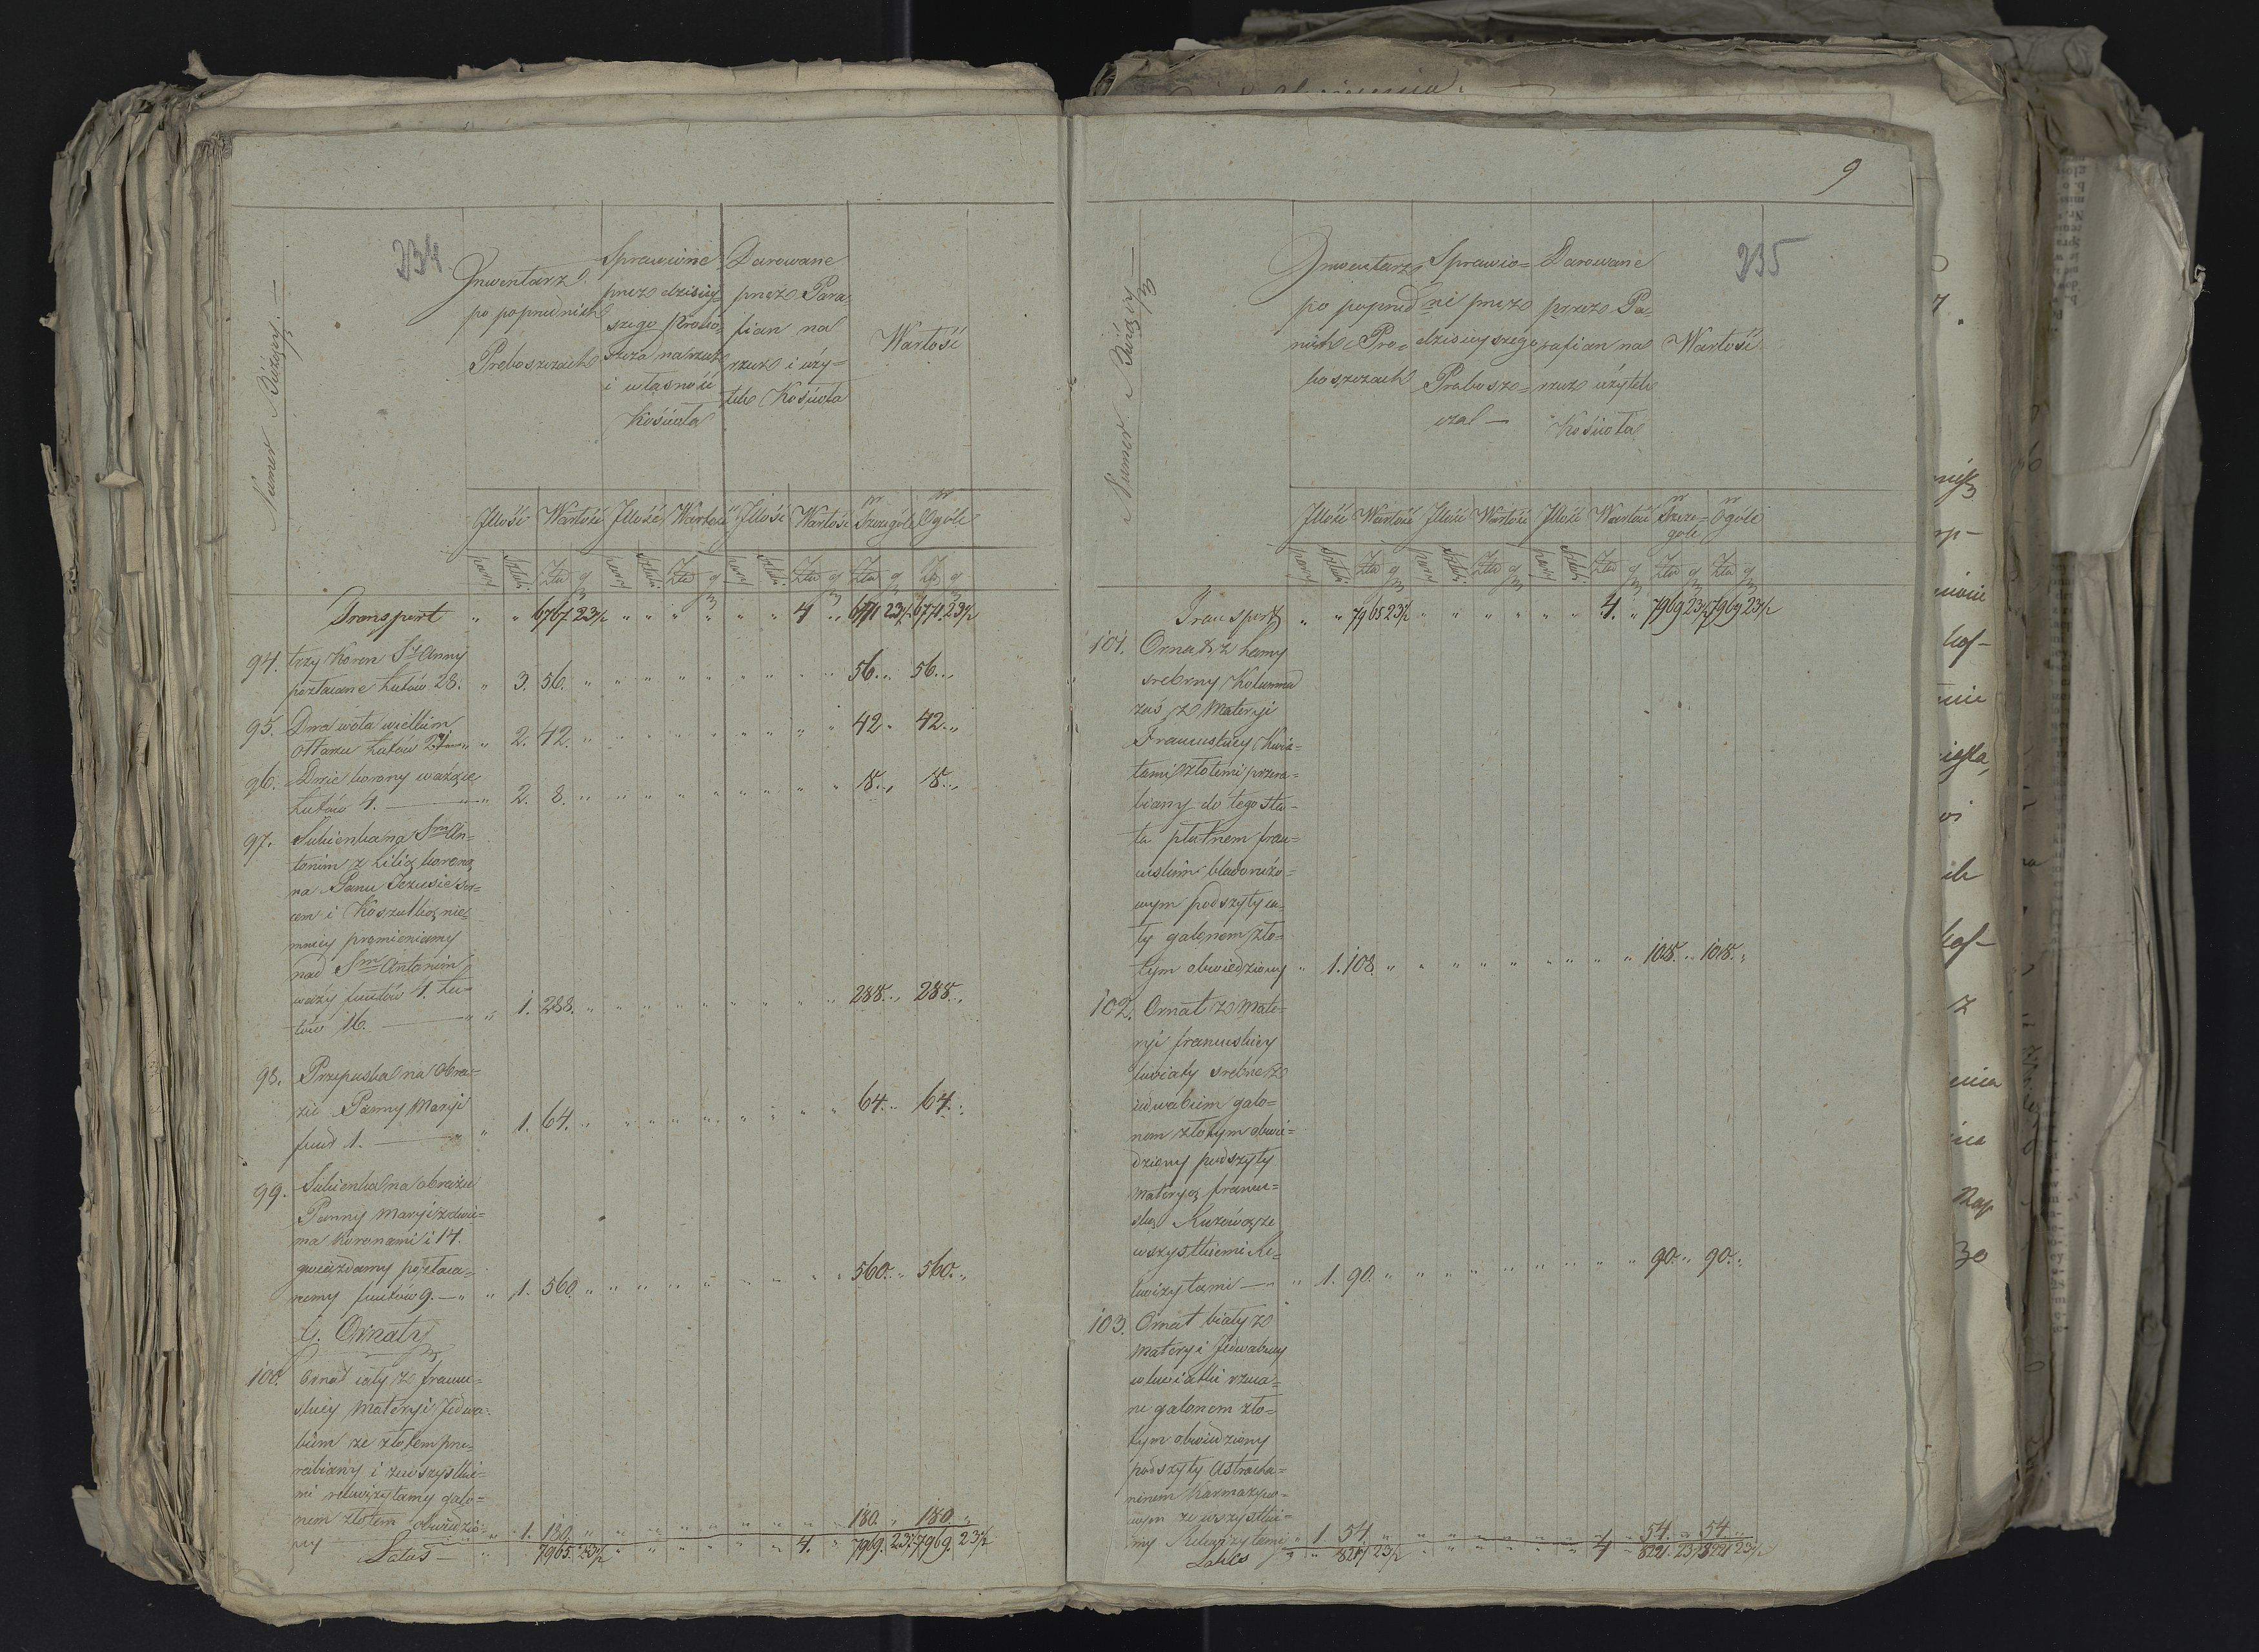 234
Numer Bieżący. —
Inwentarz
po poprzednich
Proboszczach
Sprawione
przez dzisiey-
szego Probo-
szcza na rzecz
i własność
Kościoła
Darowane
przez Para-
fian na
rzecz i uży-
tek Kościoła
Wartość
Illość Wartość Illość Wartość Illość Wartość w Szczególe w Ogóle
pary Sztuki Złd g pary Sztuki Złd g pary Sztuki Złd g Złd g Złd g
Transport " " 6767 23½ " " " " " " 4 " 6771 23½ 6771 23½
94. trzy Koron St Anny
pozłacane Łutów 28. " 3. 56. " 56 " 56 "
95. Dwa wota wielkim
ołtarzu Łutów 21 " 2. 42. " 42 " 42 "
96. Dwie korony ważące
Łutów 4. — " 2. 8. " 8 " 8 "
97. Sukienka na Sm An=
tonim z Lilią koroną
na Panu Jezusie ser=
cem i Koszulką nie=
mniey promieniamy
nad Sm Antonim
waży funtów 4. łu=
tów 16. — " 1. 288. " 288 " 288 "
98. Przepaska na Obra=
zie Panny Maryi
funt 1. — " 1. 64. " 64 " 64 "
99. Sukienka na obrazie
Panny Maryi z dwie=
ma Koronami i 14.
gwiazdamy pozłaca=
nemy funtów 9. — " 1. 560. " 560 " 560 "
G. Ornaty
100. Ornat cały z francu=
skiey Materyi Jedwa=
biem ze złotem prze=
rabiany i ze wszystkie=
mi rekwizytamy galo=
nem złotem obwiedzio=
ny — 1. 180. " 180 " 180 "
Latus — " 7965. 23½ " 4. " 7969. 23½ 7969. 23½
9
235
Numer Bieżący —
Inwentarz
po poprzed
nich Pro=
boszczach
Sprawio=
ne przez
dzisieyszego
Probosz=
cza —
Darowane
przez Pa=
rafian na
rzecz użytek
Kościoła
Wartość
Illość Wartość Illość Wartość Illość Wartość w Szcze=gole w Ogóle
pary Sztuki Złd g pary Sztuki Złd g pary Sztuki Złd g Złd g Złd g
Transport " " 7965 23½ " " " " " " 4. " 7969 23½ 7969 23½
101. Ornat z lamy
srebrny Kolumna
zaś z Materyi
Francuskiey Kwia=
tami złotemi przera=
biany do tego stu=
ła płutnem fran=
cuskim bladoróżo=
wym podszyty ca=
ły galonem zło=
tym obwiedziony " 1. 108. " 108 " 108 "
102. Ornat z Mate=
ryi francuskiey
kwiaty srebne z
iedwabiem galo=
nem złotym obwie=
dziony podszyty
Materyą francu=
ską Różową ze
wszystkiemi Re=
kwizytami — " 1. 90. " 90 " 90 "
103. Ornat biały z
Materyi Jedwabney
w kwiatki rzuca=
ne galonem zło=
tym obwiedziony
podszyty Astracha=
ninem Karmazyno=
wym ze wszystkie=
my Rekwizytami " 1. 54. " 54 " 54 "
Latus " " 8217 23½ " 4 " 8221. 23½ 8221 23½